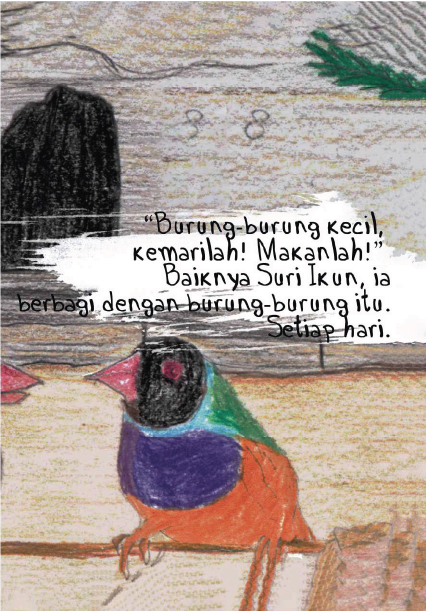 “Burung-burung kecil,
kemarilah! Makanlah!”
Baiknya Suri Ikun, ia
berbagi dengan burung-burung itu.
Setiap hari.